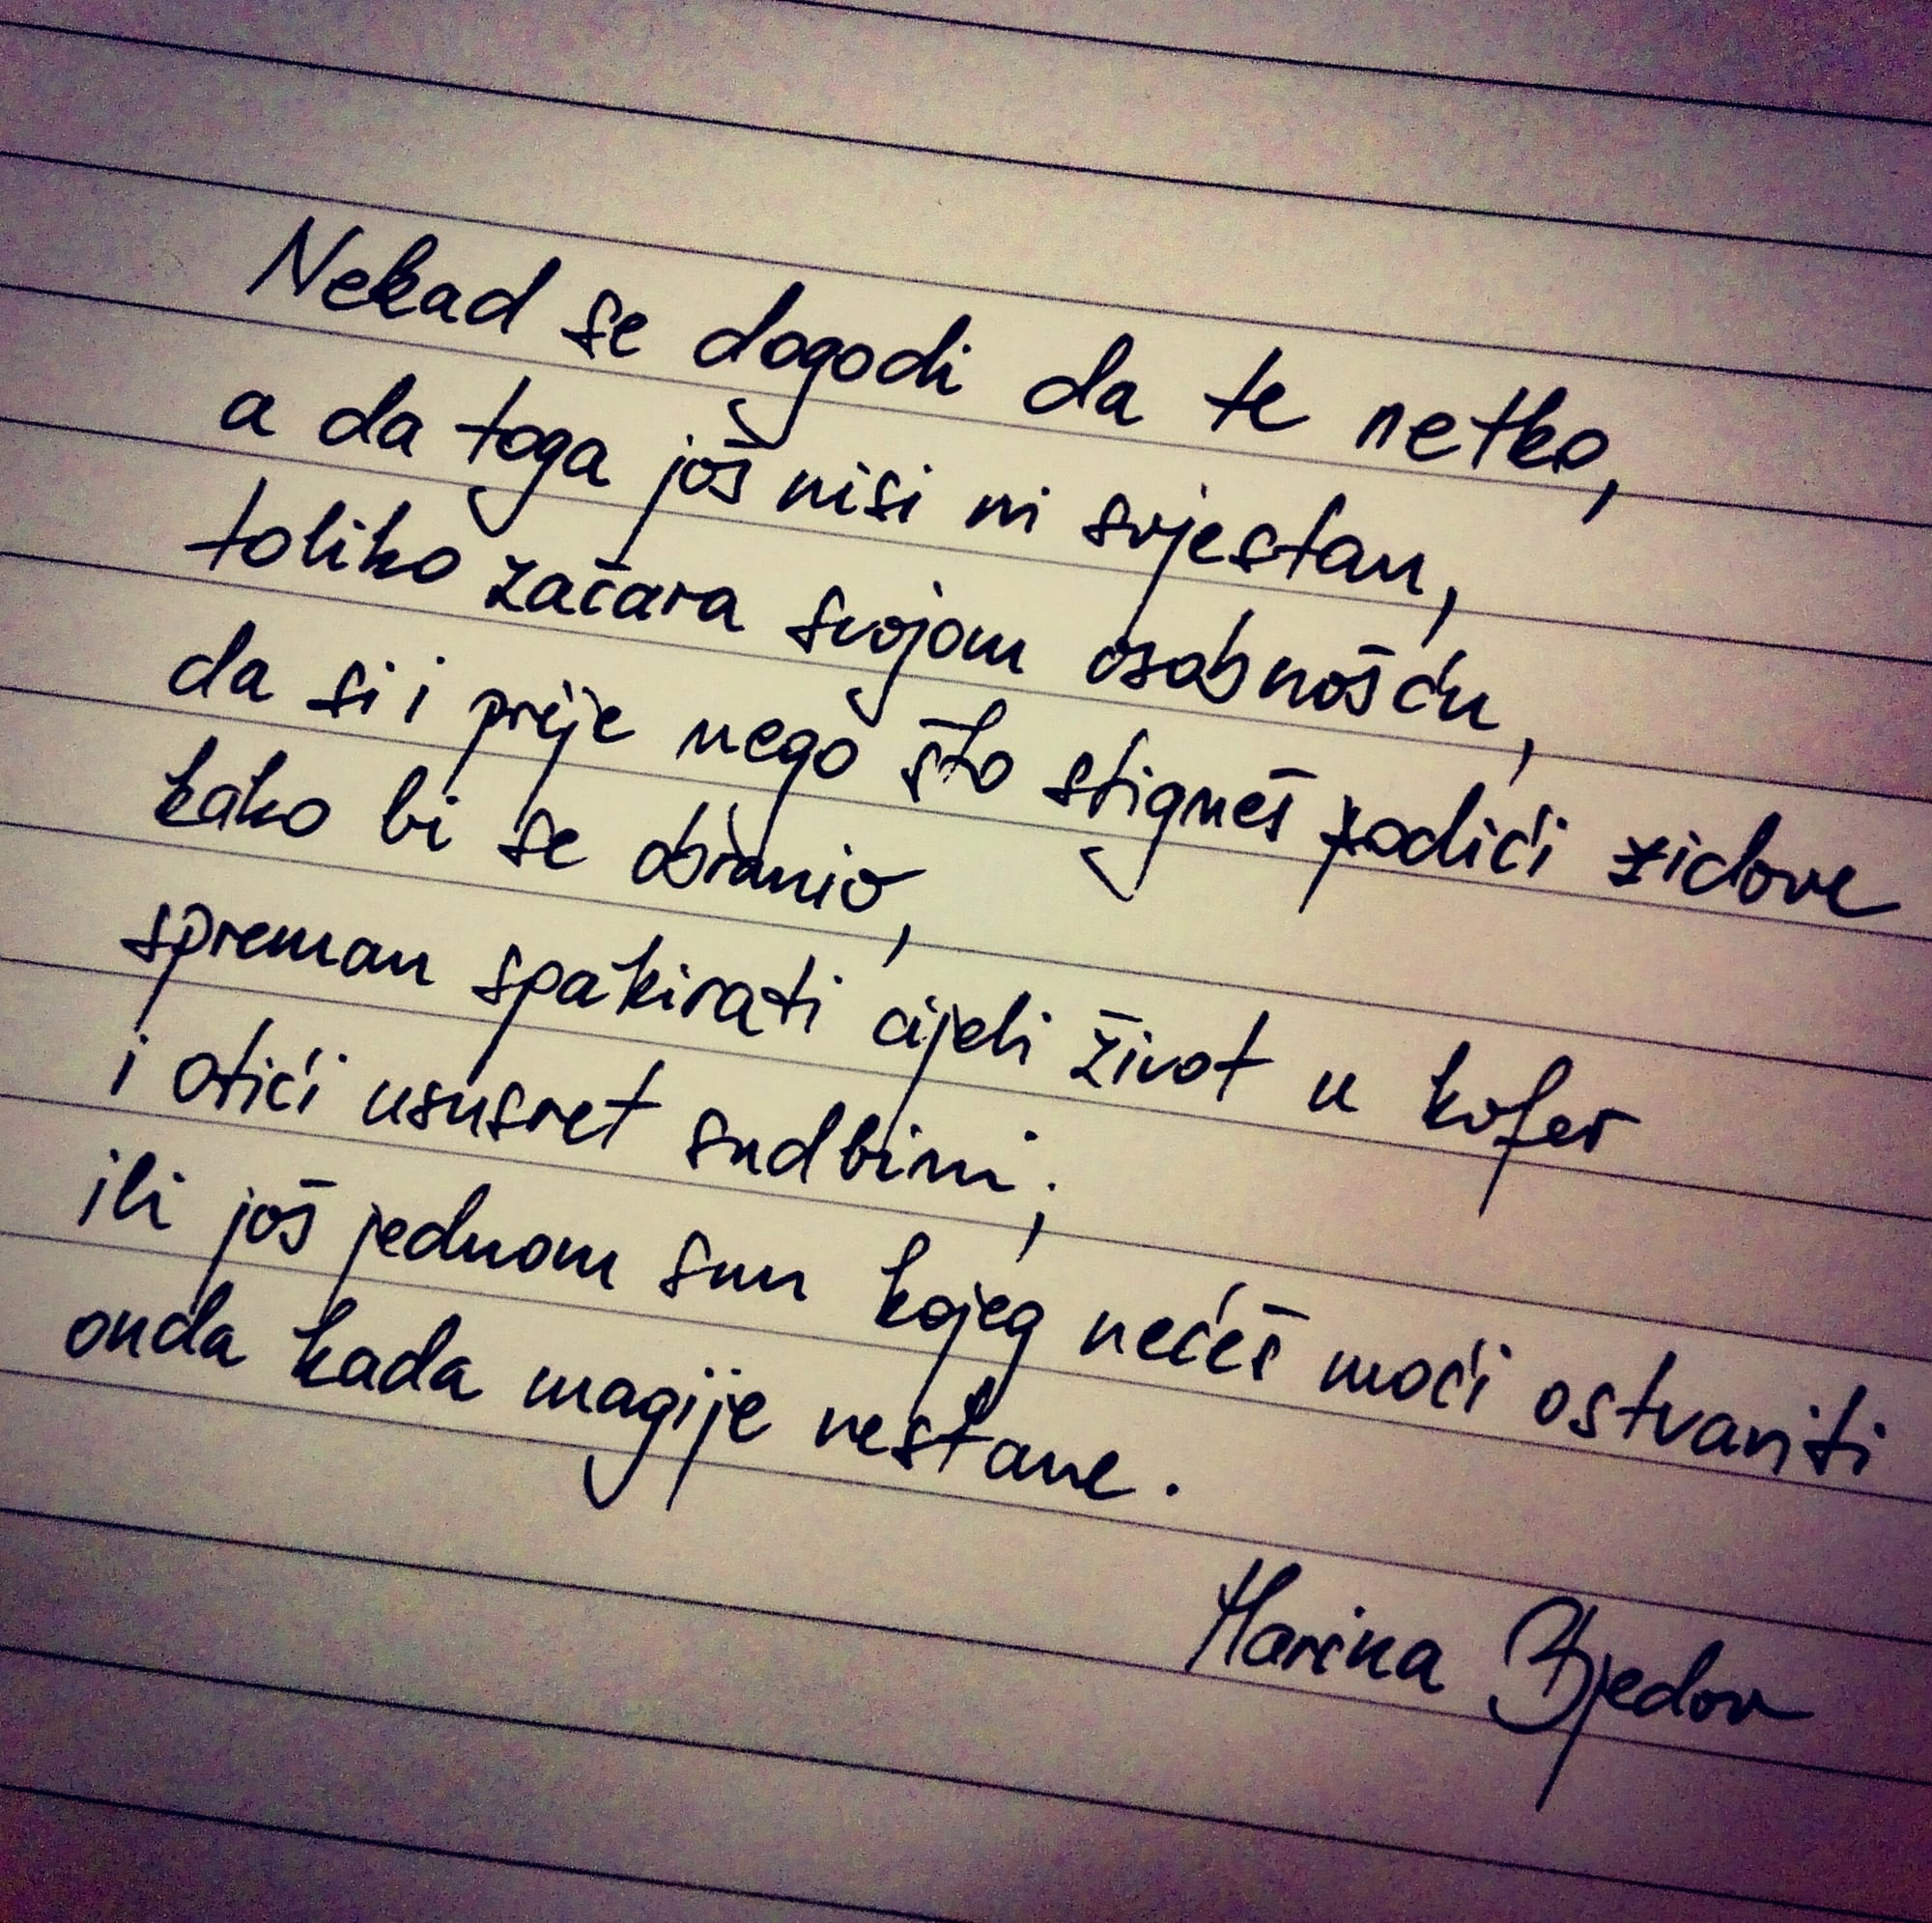 Nekad se dogodi da te netko,
a da toga još nisi ni svjestan,
toliko začara svojom osobnošću,
da si i prije nego što stigneš podići zidove
kako bi se obranio,
spreman spakirati cijeli život u kofer
i otići ususret sudbini;
ili još jednom snu kojeg nećeš moći ostvariti
onda kada magije nestane.
Marina Bjedov